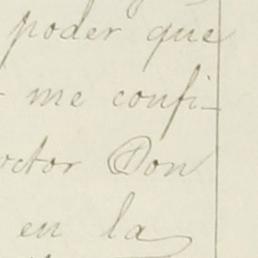 poder que
me confi-
octor Don
en la